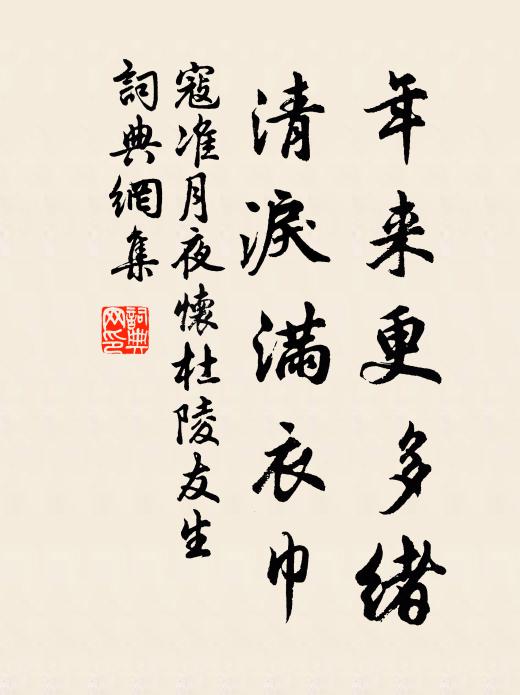 年来更多緒
清淚滿衣巾
寇准月夜懷杜陵友生
詞典網集
詞典
网印